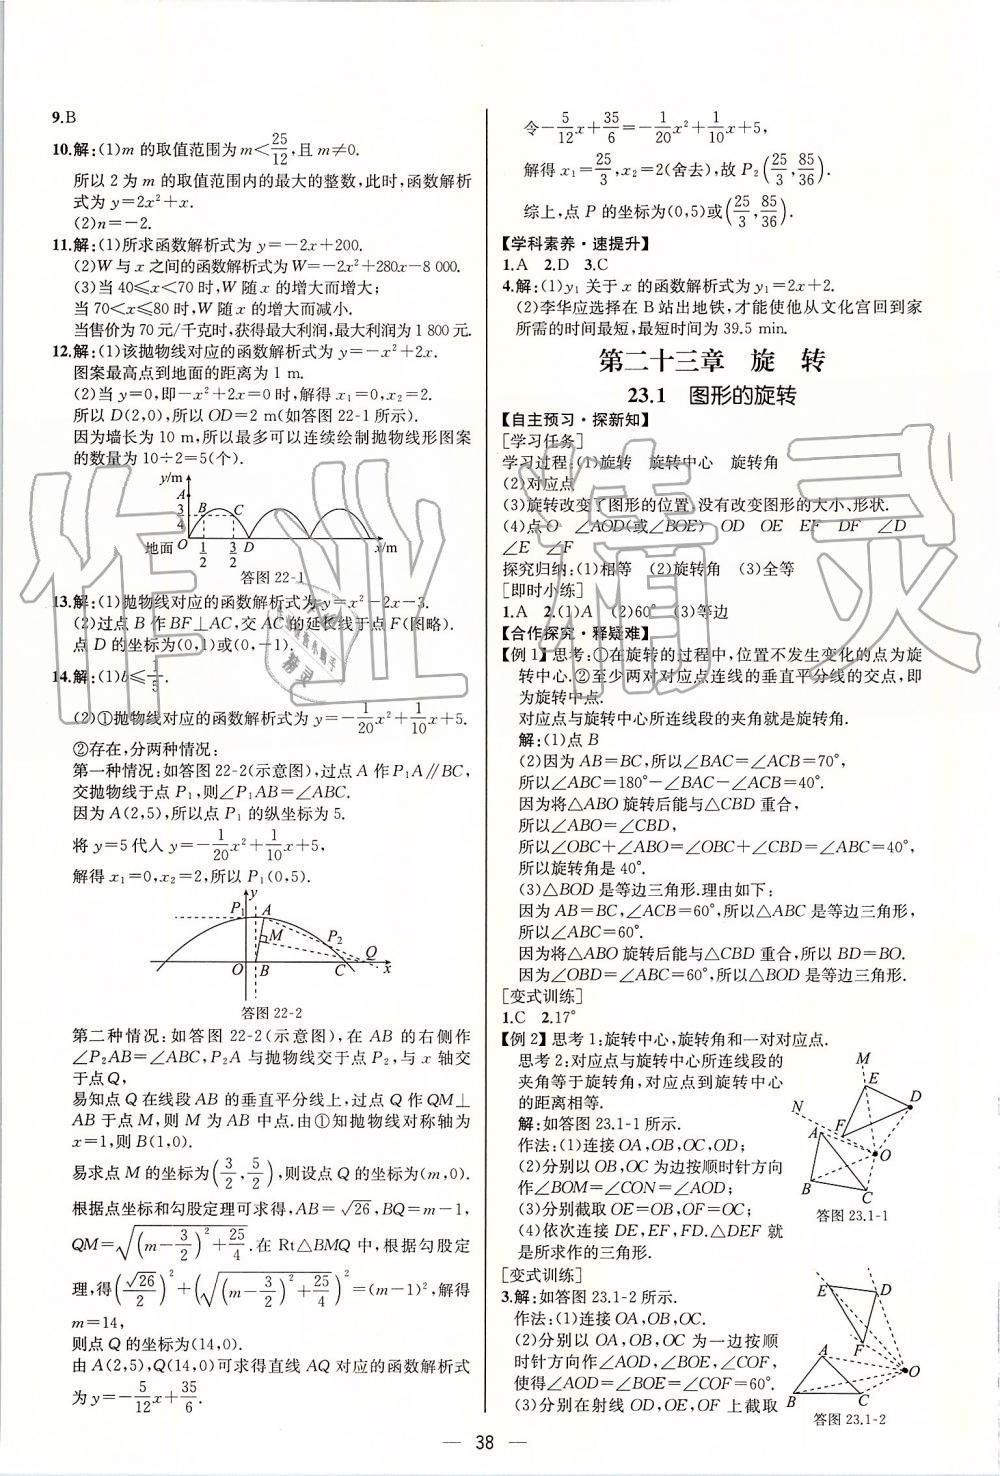 9.B
10.解:(1)m 的取值范围为 m<25/12,且 m≠0.
所以 2 为 m 的取值范围内的最大的整数,此时,函数解析
式为 y=2x²+x.
(2)n=-2.
11.解:(1)所求函数解析式为 y=-2x+200.
(2)W 与 x 之间的函数解析式为 W=-2x²+280x-8 000.
(3)当 40≤x<70 时,W 随 x 的增大而增大;
当 70<x≤80 时,W 随 x 的增大而减小.
当售价为 70 元/千克时,获得最大利润,最大利润为 1 800 元.
12.解:(1)该抛物线对应的函数解析式为 y=-x²+2x.
图案最高点到地面的距离为 1 m.
(2)当 y=0 时,即-x²+2x=0 时,解得 x₁=0,x₂=2.
所以 D(2,0),所以 OD=2 m(如答图 22-1 所示).
因为墙长为 10 m,所以最多可以连续绘制抛物线形图案
的数量为 10÷2=5(个).
y/m
A
3/4 B C
O 1/2 3/2 D x/m
地面
答图 22-1
13.解:(1)抛物线对应的函数解析式为 y=x²-2x-3.
(2)过点 B 作 BF⊥AC,交 AC 的延长线于点 F(图略).
点 D 的坐标为(0,1)或(0,-1).
14.解:(1)b≤1/5.
(2)①抛物线对应的函数解析式为 y=-1/20x²+1/10x+5.
②存在,分两种情况:
第一种情况:如答图 22-2(示意图),过点 A 作 P₁A∥BC,
交抛物线于点 P₁,则∠P₁AB=∠ABC.
因为 A(2,5),所以点 P₁ 的纵坐标为 5.
将 y=5 代入 y=-1/20x²+1/10x+5,
解得 x₁=0,x₂=2,所以 P₁(0,5).
y
P₁ A
M P₂
Q
O B C x
答图 22-2
第二种情况:如答图 22-2(示意图),在 AB 的右侧作
∠P₂AB=∠ABC,P₂A 与抛物线交于点 P₂,与 x 轴交
于点 Q,
易知点 Q 在线段 AB 的垂直平分线上,过点 Q 作 QM⊥
AB 于点 M,则 M 为 AB 中点.由①知抛物线对称轴为
x=1,则 B(1,0).
易求点 M 的坐标为(3/2,5/2),则设点 Q 的坐标为(m,0).
根据点坐标和勾股定理可求得,AB=√26,BQ=m-1,
QM=√((m-3/2)²+25/4).在 Rt△BMQ 中,根据勾股定
理,得(√26/2)²+(√((m-3/2)²+25/4))²=(m-1)²,解得
m=14,
则点 Q 的坐标为(14,0).
由 A(2,5),Q(14,0)可求得直线 AQ 对应的函数解析式
为 y=-5/12x+35/6.
令-5/12x+35/6=-1/20x²+1/10x+5,
解得 x₁=25/3,x₂=2(舍去),故 P₂(25/3,85/36).
综上,点 P 的坐标为(0,5)或(25/3,85/36).
【学科素养·速提升】
1.A 2.D 3.C
4.解:(1)y₁ 关于 x 的函数解析式为 y₁=2x+2.
(2)李华应选择在 B 站出地铁,才能使他从文化宫回到家
所需的时间最短,最短时间为 39.5 min.
第二十三章 旋 转
23.1 图形的旋转
【自主预习·探新知】
[学习任务]
学习过程:(1)旋转 旋转中心 旋转角
(2)对应点
(3)旋转改变了图形的位置,没有改变图形的大小、形状.
(4)点 O ∠AOD(或∠BOE) OD OE EF DF ∠D
∠E ∠F
探究归纳:(1)相等 (2)旋转角 (3)全等
[即时小练]
1.A 2.(1)A (2)60° (3)等边
【合作探究·释疑难】
【例 1】思考:①在旋转的过程中,位置不发生变化的点为旋
转中心.②至少两对对应点连线的垂直平分线的交点,即
为旋转中点.
对应点与旋转中心所连线段的夹角就是旋转角.
解:(1)点 B
(2)因为 AB=BC,所以∠BAC=∠ACB=70°,
所以∠ABC=180°-∠BAC-∠ACB=40°.
因为将△ABO 旋转后能与△CBD 重合,
所以∠ABO=∠CBD,
所以∠OBC+∠ABO=∠OBC+∠CBD=∠ABC=40°.
所以旋转角是 40°.
(3)△BOD 是等边三角形.理由如下:
因为 AB=BC,∠ACB=60°,所以△ABC 是等边三角形,
所以∠ABC=60°.
因为将△ABO 旋转后能与△CBD 重合,所以 BD=BO.
因为∠OBD=∠ABC=60°,所以△BOD 是等边三角形.
[变式训练]
1.C 2.17°
【例 2】思考 1:旋转中心,旋转角和一对对应点.
思考 2:对应点与旋转中心所连线段的
夹角等于旋转角,对应点到旋转中心
的距离相等.
解:如答图 23.1-1 所示.
作法:(1)连接 OA,OB,OC,OD;
(2)分别以 OB,OC 为边按顺时针方向
作∠BOM=∠CON=∠AOD;
(3)分别截取 OE=OB,OF=OC;
(4)依次连接 DE,EF,FD.△DEF 就
是所求作的三角形.
M
E
D
N
A F
O
B
C
答图 23.1-1
[变式训练]
3.解:如答图 23.1-2 所示.
作法:(1)连接 OA,OB,OC.
(2)分别以 OA,OB,OC 为一边按顺
时针方向作∠AOD,∠BOE,∠COF,
使得∠AOD=∠BOE=∠COF=60°.
(3)分别在射线 OD,OE,OF 上截取
E D
F
A
O
B C
答图 23.1-2
— 38 —
作业精灵